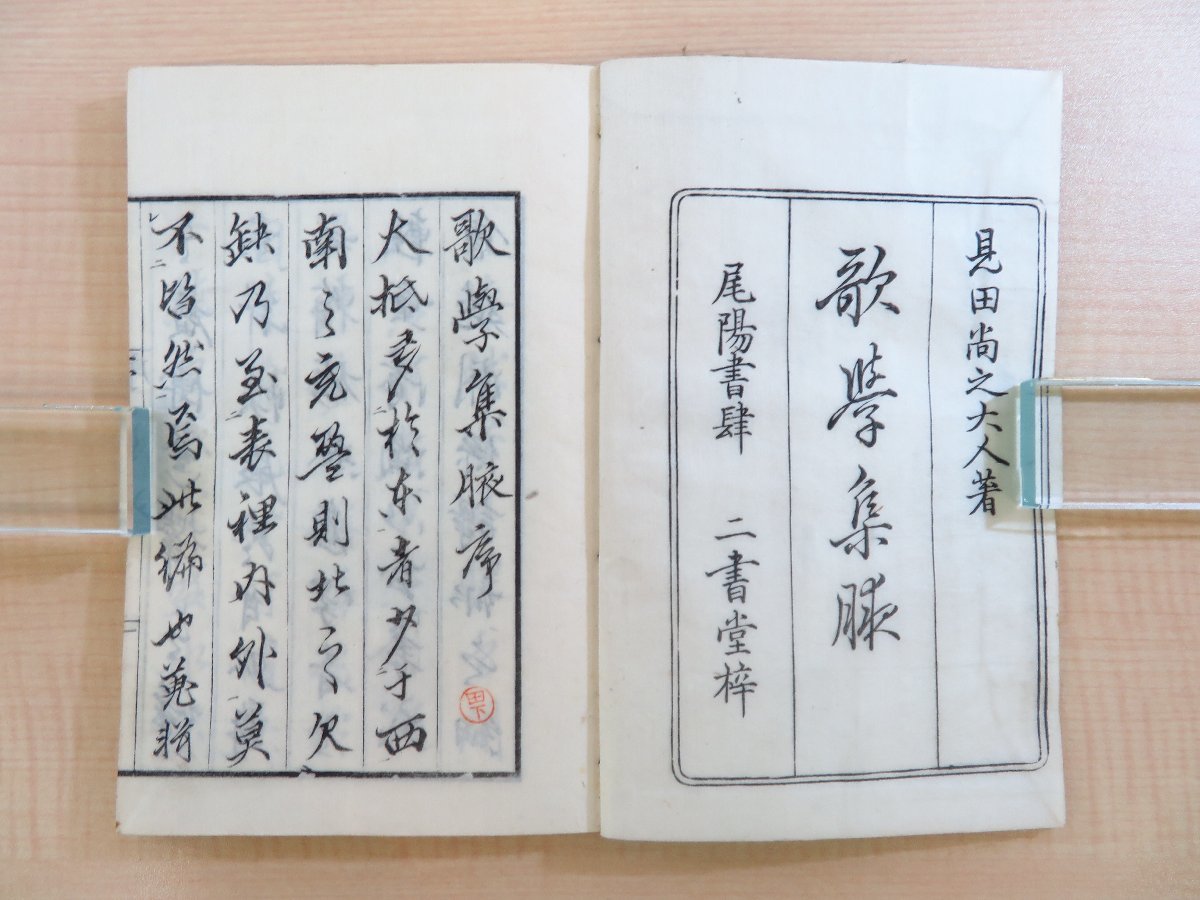 見田尚之大人著
歌學集腋
尾陽書肆 二書堂梓
歌學集腋序
大抵多於東者少于西
南之充盈則北之欠
缺乃至表裡内外莫
不皆然焉此編也蒐
田下